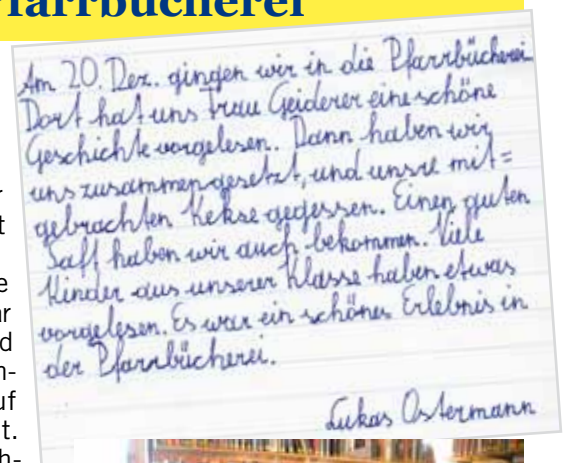 Pfarrbücherei
Am 20. Dez. gingen wir in die Pfarrbücherei.
Dort hat uns Frau Geiderer eine schöne
Geschichte vorgelesen. Dann haben wir
uns zusammengesetzt, und unsre mit=
gebrachten Kekse gegessen. Einen guten
Saft haben wir auch bekommen. Viele
Kinder aus unserer Klasse haben etwas
vorgelesen. Es war ein schönes Erlebnis in
der Pfarrbücherei.
Lukas Ostermann